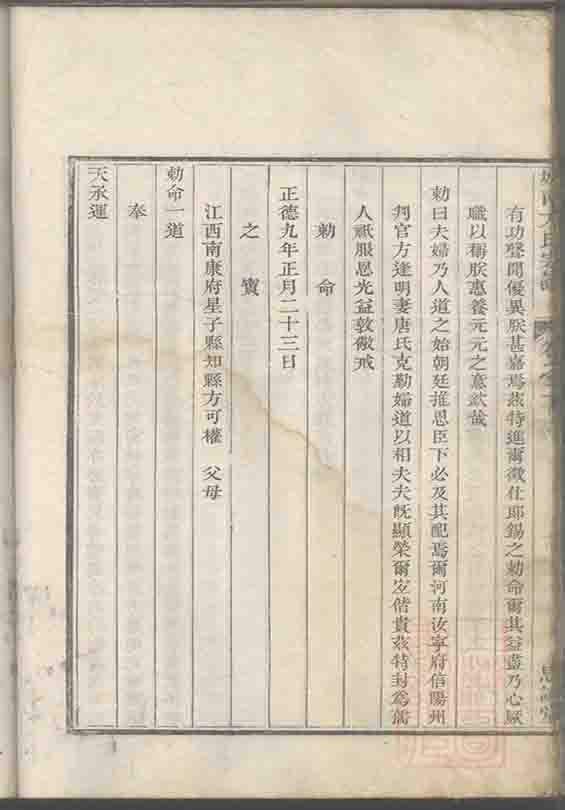 有功聲聞優異朕甚嘉焉茲特進爾徵仕郎錫之勅命爾其益盡乃心厥
職以稱朕惠養元元之意欽哉
勅曰夫婦乃人道之始朝廷推恩臣下必及其配焉爾河南汝寧府信陽州
判官方逢明妻唐氏克勤婦道以相夫夫旣顯榮爾宜偕貴茲特封為孺
人祇服恩光益敦儆戒
勅命
之寶
正德九年正月二十三日
江西南康府星子縣知縣方可權 父母
勅命一道
奉
天承運